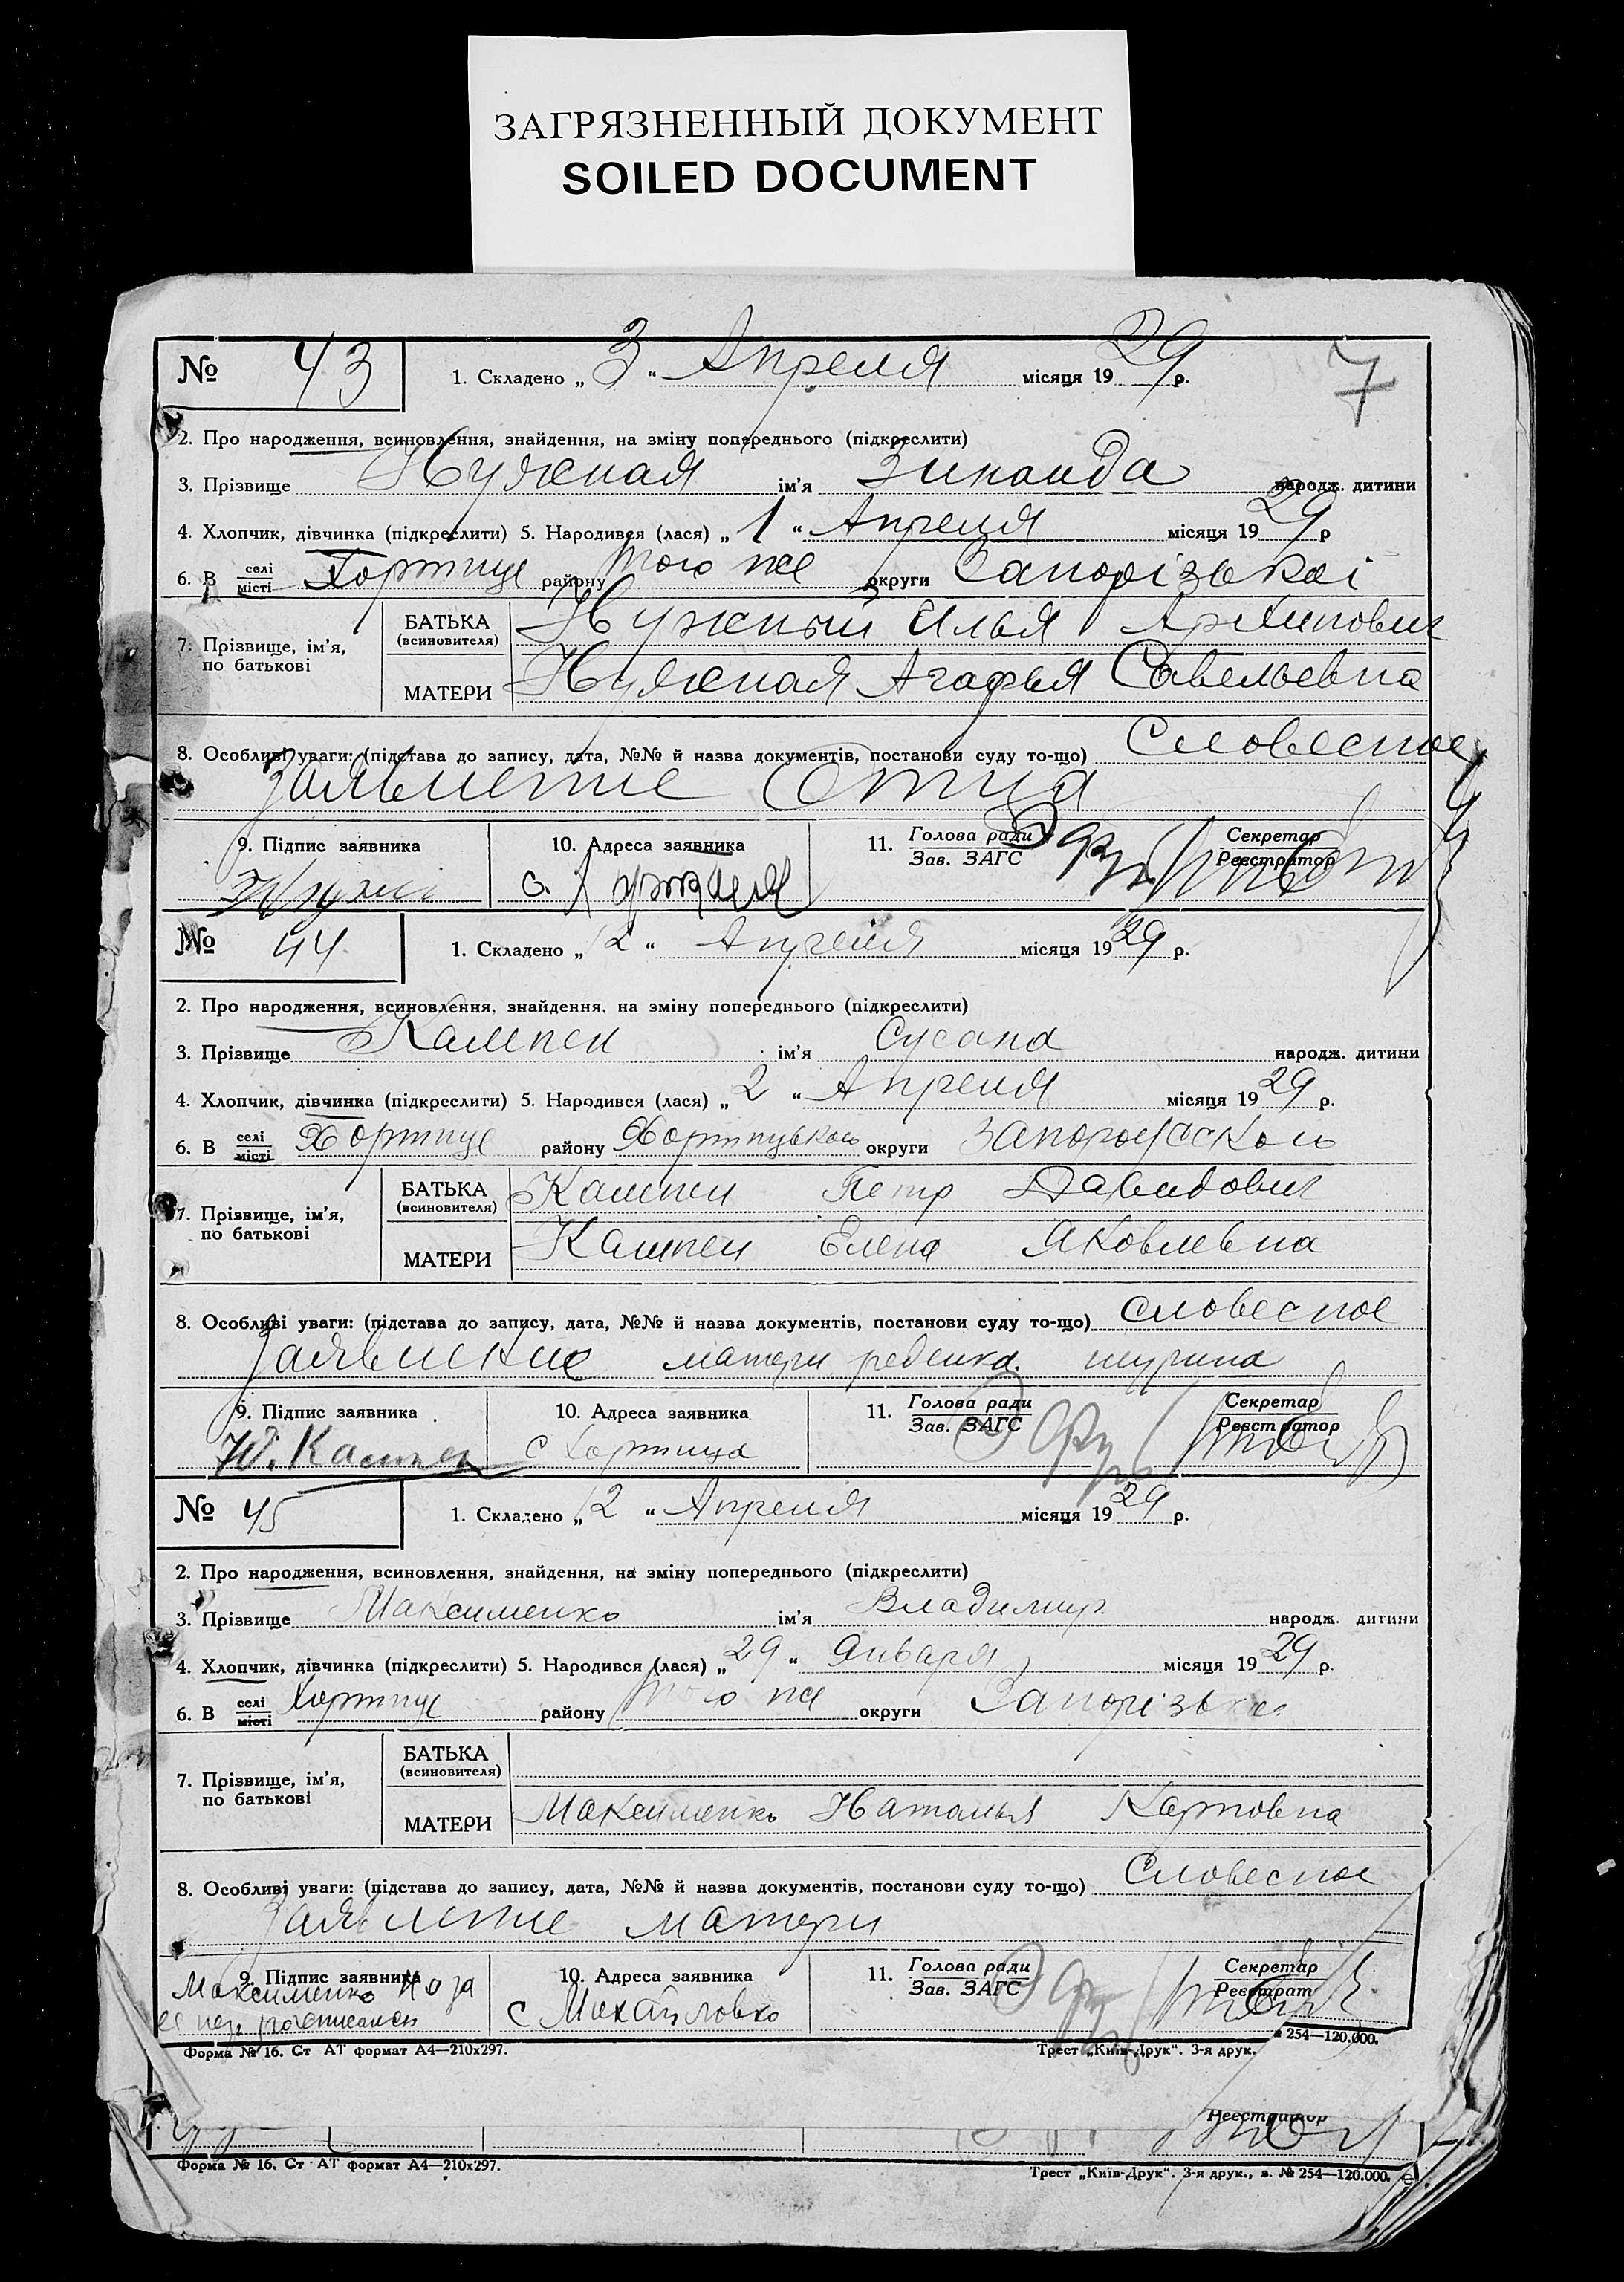 ЗАГРЯЗНЕННЫЙ ДОКУМЕНТ
SOILED DOCUMENT
7
№ 43 1. Складено „3“ Апреля місяця 1929 р.
2. Про народження, всиновлення, знайдення, на зміну попереднього (підкреслити)
3. Прізвище Нужная ім'я Зинаида народж. дитини
4. Хлопчик, дівчинка (підкреслити) 5. Народився (лася) „1“ Апреля місяця 1929 р
6. В селі місті Хортице району того же округи Запорізькоі
7. Прізвище, ім'я, по батькові БАТЬКА (всиновителя) Нужный Илья Архипович
МАТЕРИ Нужная Агафья Савельевна
8. Особливі уваги: (підстава до запису, дата, №№ й назва документів, постанови суду то-що) Словесное
заявление Отца
9. Підпис заявника 10. Адреса заявника 11. Голова ради Зав. ЗАГС Секретар Реєстратор
с.
№ 44 1. Складено „2“ Апреля місяця 1929 р.
2. Про народження, всиновлення, знайдення, на зміну попереднього (підкреслити)
3. Прізвище Кампен ім'я Сусана народж. дитини
4. Хлопчик, дівчинка (підкреслити) 5. Народився (лася) „2“ Апреля місяця 1929 р.
6. В селі місті Хортице району Хортицького округи
7. Прізвище, ім'я, по батькові БАТЬКА (всиновителя) Кампен Петр Давидович
МАТЕРИ Кампен Елена Яковлевна
8. Особливі уваги: (підстава до запису, дата, №№ й назва документів, постанови суду то-що) словесное
заявление матери ребенка. шурина
9. Підпис заявника 10. Адреса заявника 11. Голова ради Зав. ЗАГС Секретар Реєстратор
Ю. Кампен с Хортица
№ 45 1. Складено „2“ Апреля місяця 1929 р.
2. Про народження, всиновлення, знайдення, на зміну попереднього (підкреслити)
3. Прізвище Максименко ім'я Владимир народж. дитини
4. Хлопчик, дівчинка (підкреслити) 5. Народився (лася) „29“ Января місяця 1929 р.
6. В селі місті Хортице району того же округи Запорізькоі
7. Прізвище, ім'я, по батькові БАТЬКА (всиновителя)
МАТЕРИ Максименко Наталья Карповна
8. Особливі уваги: (підстава до запису, дата, №№ й назва документів, постанови суду то-що) Словесное
заявление матери
9. Підпис заявника 10. Адреса заявника 11. Голова ради Зав. ЗАГС Секретар Реєстрат
Максименко
с Михайловко
254—120.000.
Форма № 16. Ст АТ формат А4—210х297. Трест „Київ-Друк“. 3-я друк.
Реєстратор
Форма № 16. Ст АТ формат А4—210х297. Трест „Київ-Друк“. 3-я друк., з. № 254—120.000.